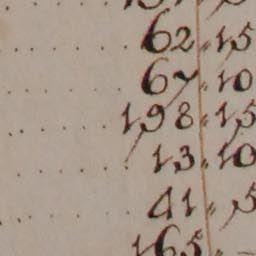 62 " 15
67 " 10
198 " 15
13 " 10
41 " 5
165 " –